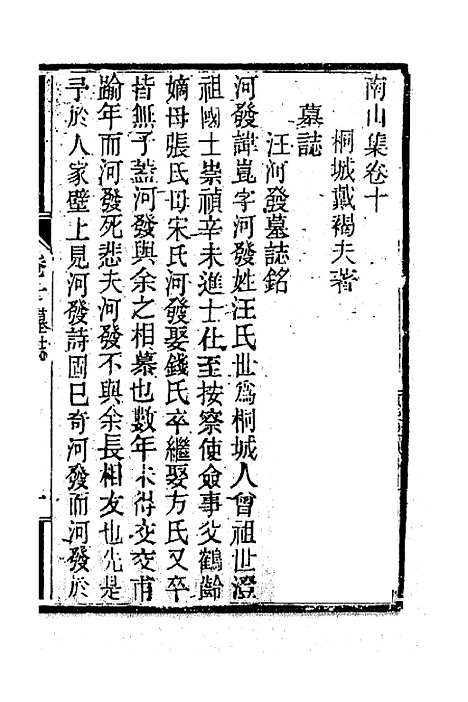 南山集卷十
桐城戴褐夫著
墓誌
汪河發墓誌銘
河發諱崑字河發姓汪氏世爲桐城人曾祖世澄
祖國士崇禎辛未進士仕至按察使僉事父鶴齡
嫡母張氏母宋氏河發娶錢氏卒繼娶方氏又卒
皆無子葢河發與余之相慕也數年未得交交甫
踰年而河發死悲夫河發不與余長相友也先是
予於人家壁上見河發詩固已奇河發而河發於
卷十墓誌
一